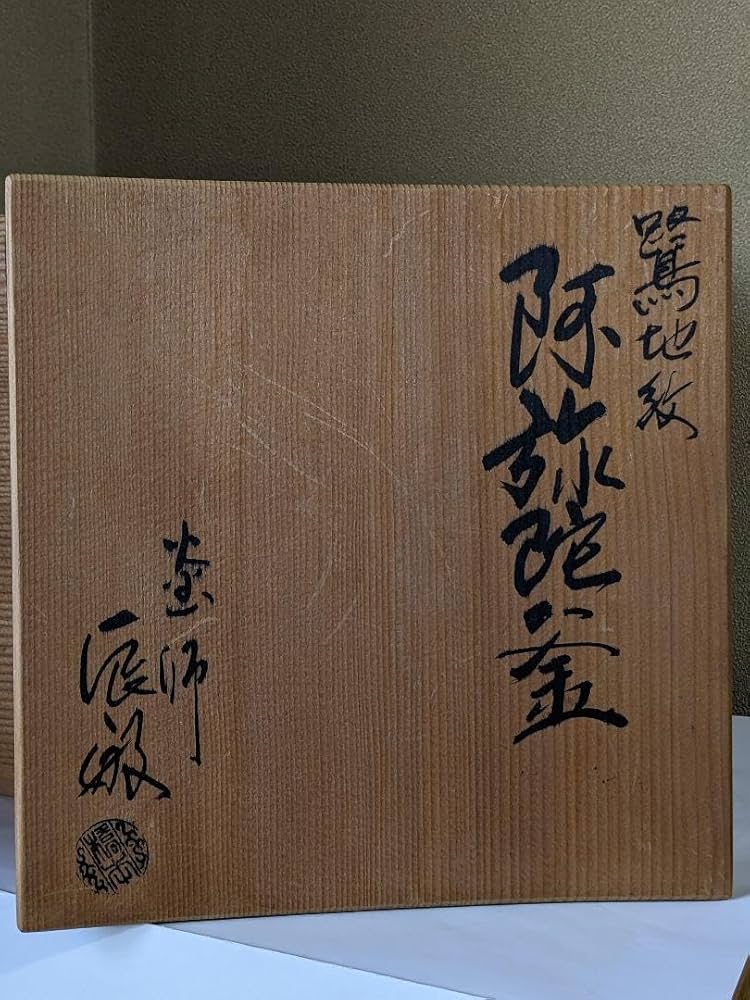 鷺地紋
阿弥陀釜
釜師
辰敏